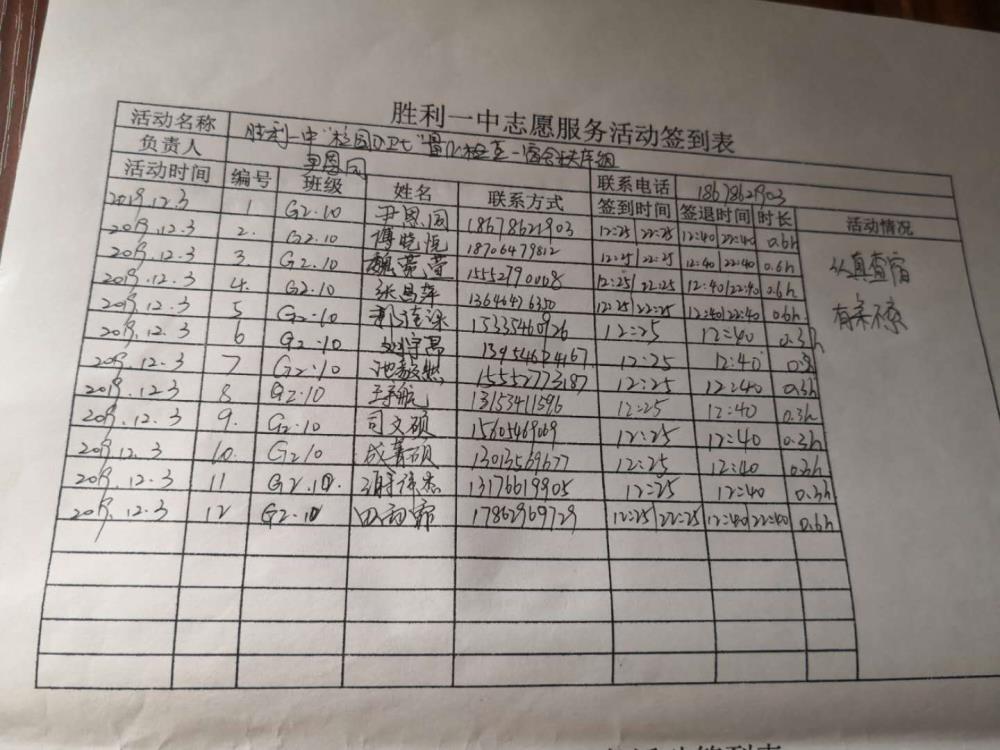 胜利一中志愿服务活动签到表
活动名称 胜利一中"校园
负责人 尹恩同 联系电话 18678621903
活动时间 编号 班级 姓名 联系方式 签到时间 签退时间 时长 活动情况
2019.12.3 1 G2.10 尹恩同 18678621903 12:25/22:25 12:40/22:40 0.6h
2019.12.3 2. G2.10 傅晓悦 18706479812 12:25/22:25 12:40/22:40 0.6h 认真查宿
2019.12.3 3 G2.10 15552790008 12:25/22:25 12:40/22:40 0.6h
2019.12.3 4. G2.10 张昌萍 13646476350 12:25/22:25 12:40/22:40 0.6h 有条不紊
2019.12.3 5 G2.10 15335460926 12:25 12:40 0.3h
2019.12.3 6 G2.10 刘宇昌 13954624167 12:25 12:40 0.3
2019.12.3 7 G2.10 15552773187 12:25 12:40 0.3h
2019.12.3 8 G2.10 王子航 13153411596 12:25 12:40 0.3h
2019.12.3 9. G2.10 司文硕 15605469069 12:25 12:40 0.3h
2019.12.3 10. G210 成菁硕 13013569677 12:25 12:40 0.3h
2019.12.3 11 G2.10. 13176619905 12:25 12:40 0.3h
2019.12.3 12 G2.10 17862969729 12:25/22:25 12:40/22:40 0.6h